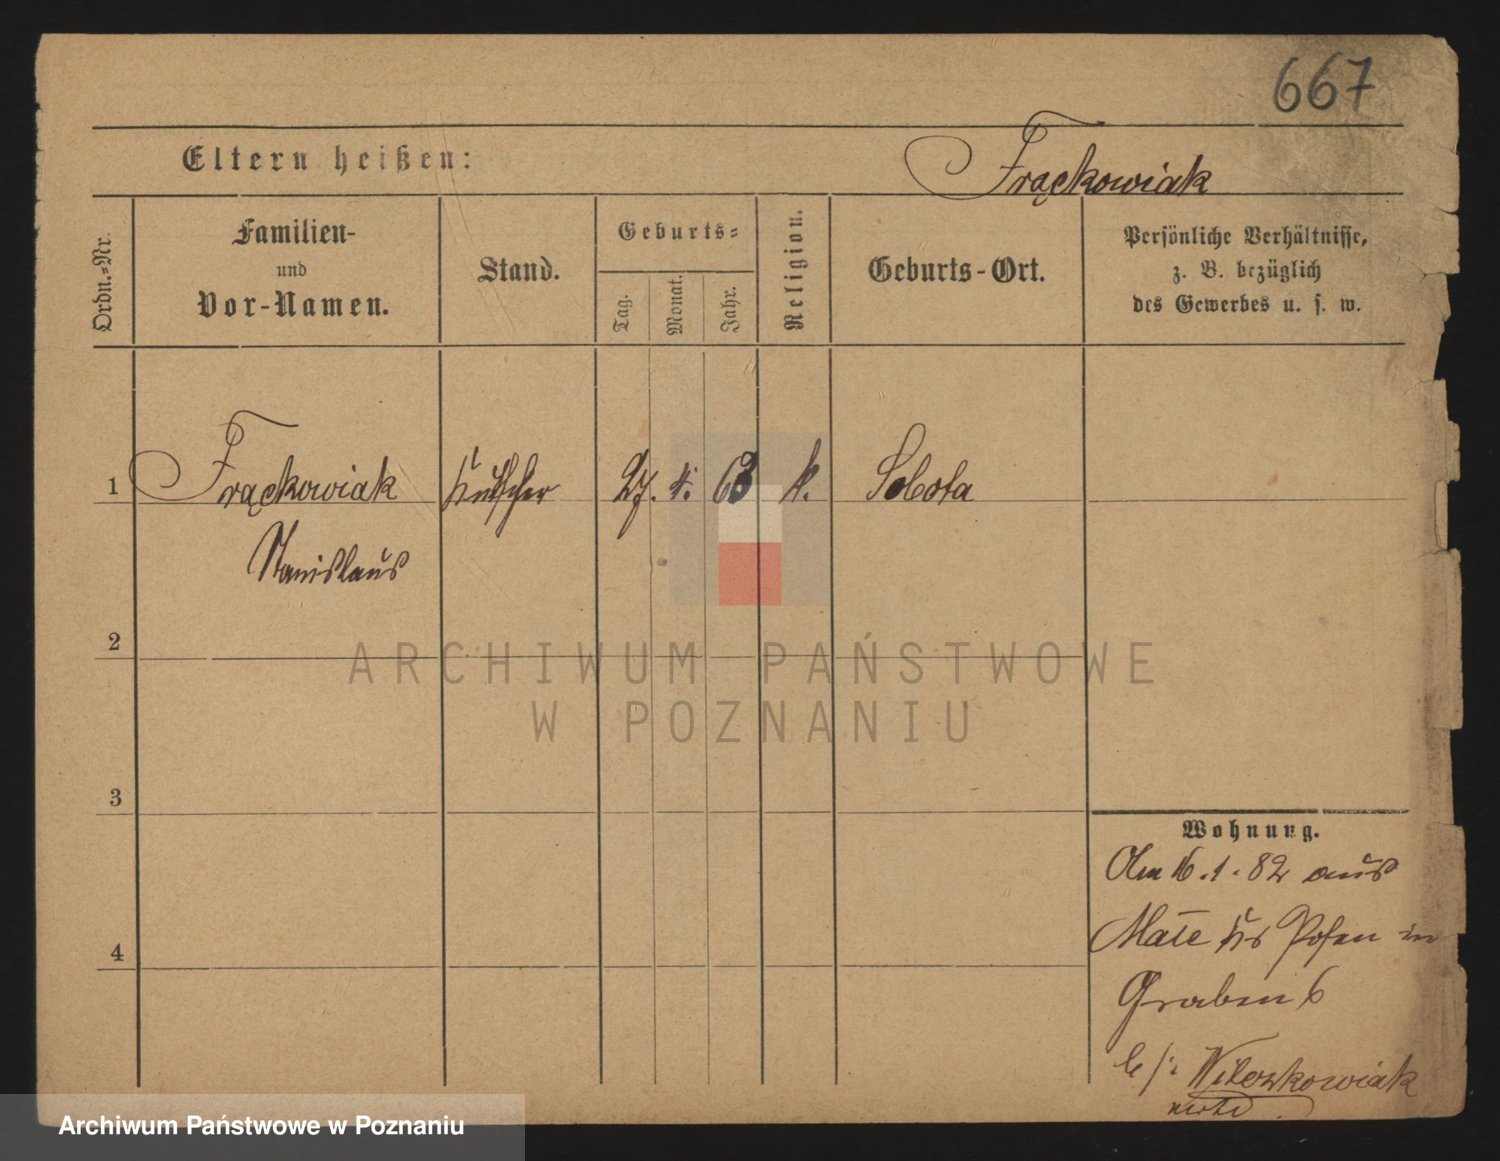 667
Eltern heißen:
Frąckowiak
Ordn.-Nr.
Familien-
und
Vor-Namen.
Stand.
Geburts-
Tag.
Monat.
Jahr.
Religion.
Geburts-Ort.
Persönliche Verhältnisse,
z. B. bezüglich
des Gewerbes u. s. w.
1 Frąckowiak Kutscher 27. 4. 63 k. Sobota
Stanislaus
2
3
4
ARCHIWUM PAŃSTWOWE
W POZNANIU
Wohnung.
Am 16.1.82 aus
Krs Posen in
Graben 6
Archiwum Państwowe w Poznaniu